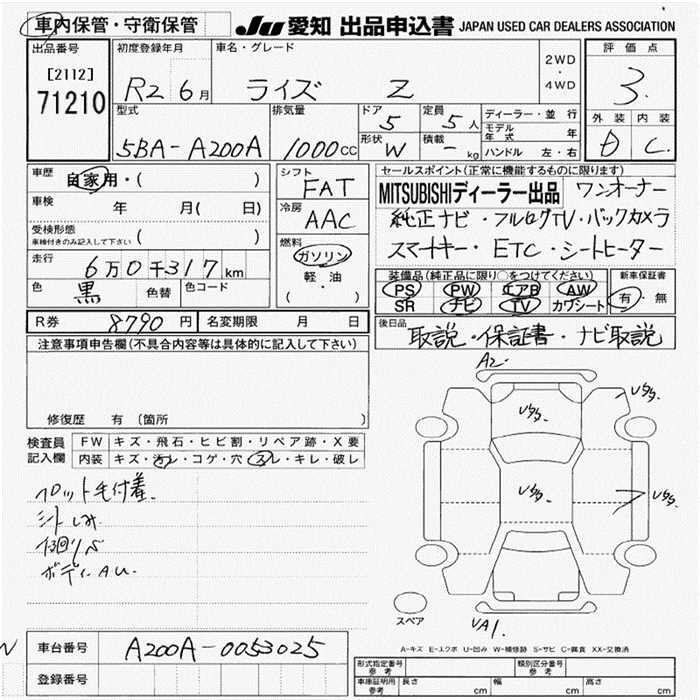 車内保管・守衛保管
JU 愛知 出品申込書 JAPAN USED CAR DEALERS ASSOCIATION
出品番号
[2112]
71210
初度登録年月
R2 6月
車名・グレード
ライズ Z
2WD
・
4WD
評価点
3
外装 内装
D C
型式
5BA-A200A
排気量
1000cc
ドア
5
形状
W
定員
5人
積載
- kg
ディーラー・並行
モデル年式 年
ハンドル 左・右
車歴
自家用・( )
車検
年 月( 日)
受検形態
車検付きのみ記入して下さい ( )
走行
6万0千317km
色
黒
色替
色コード
シフト
FAT
冷房
AAC
燃料
ガソリン
軽・油
( )
セールスポイント(正常に機能するものに限ります)
MITSUBISHIディーラー出品 ワンオーナー
純正ナビ・フルセグTV・バックカメラ
スマートキー・ETC・シートヒーター
装備品(純正品に限り○をつけてください)
PS PW エアB AW
SR ナビ TV カワシート
新車保証書
有・無
R券 8790円
名変期限 月 日
後日品
取説・保証書・ナビ取説
注意事項申告欄(不具合内容等は具体的に記入して下さい)
修復歴 有 〔箇所 〕
検査員
記入欄
FW キズ・飛石・ヒビ割・リペア跡・X要
内装 キズ・汚レ・コゲ・穴・スレ・キレ・破レ
フロット毛付着
シートしみ
ボディAU
A2
スペア
VA1.
A-キズ E-エクボ U-凹み W-補修跡 S-サビ C-腐食 XX-交換済
車台番号 A200A-0053025
登録番号
形式指定番号
参考
類別区分番号
参考
車庫証明用
参考
長さ cm 幅 cm 高さ cm